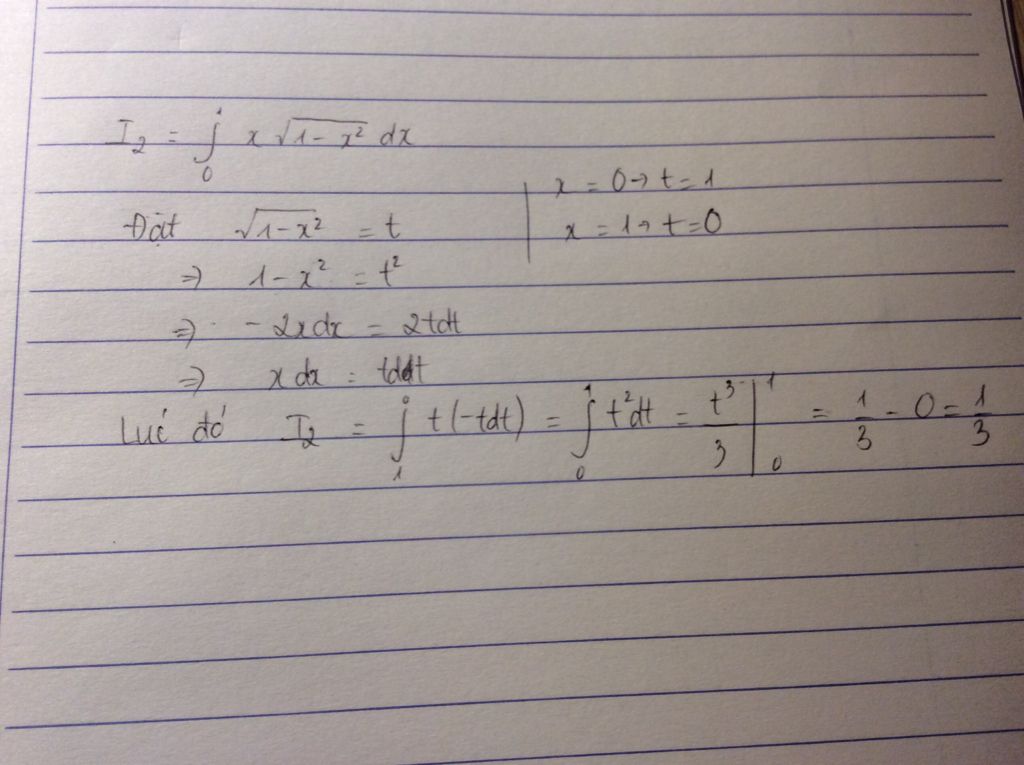 I₂ = ∫₀¹ x √(1-x²) dx
x = 0 → t = 1
Đặt √(1-x²) = t
x = 1 → t = 0
⇒ 1 - x² = t²
⇒ - 2xdx = 2tdt
⇒ x dx = tdt
Lúc đó I₂ = ∫₁⁰ t(-tdt) = ∫₀¹ t²dt = t³/3 |₀¹ = 1/3 - 0 = 1/3